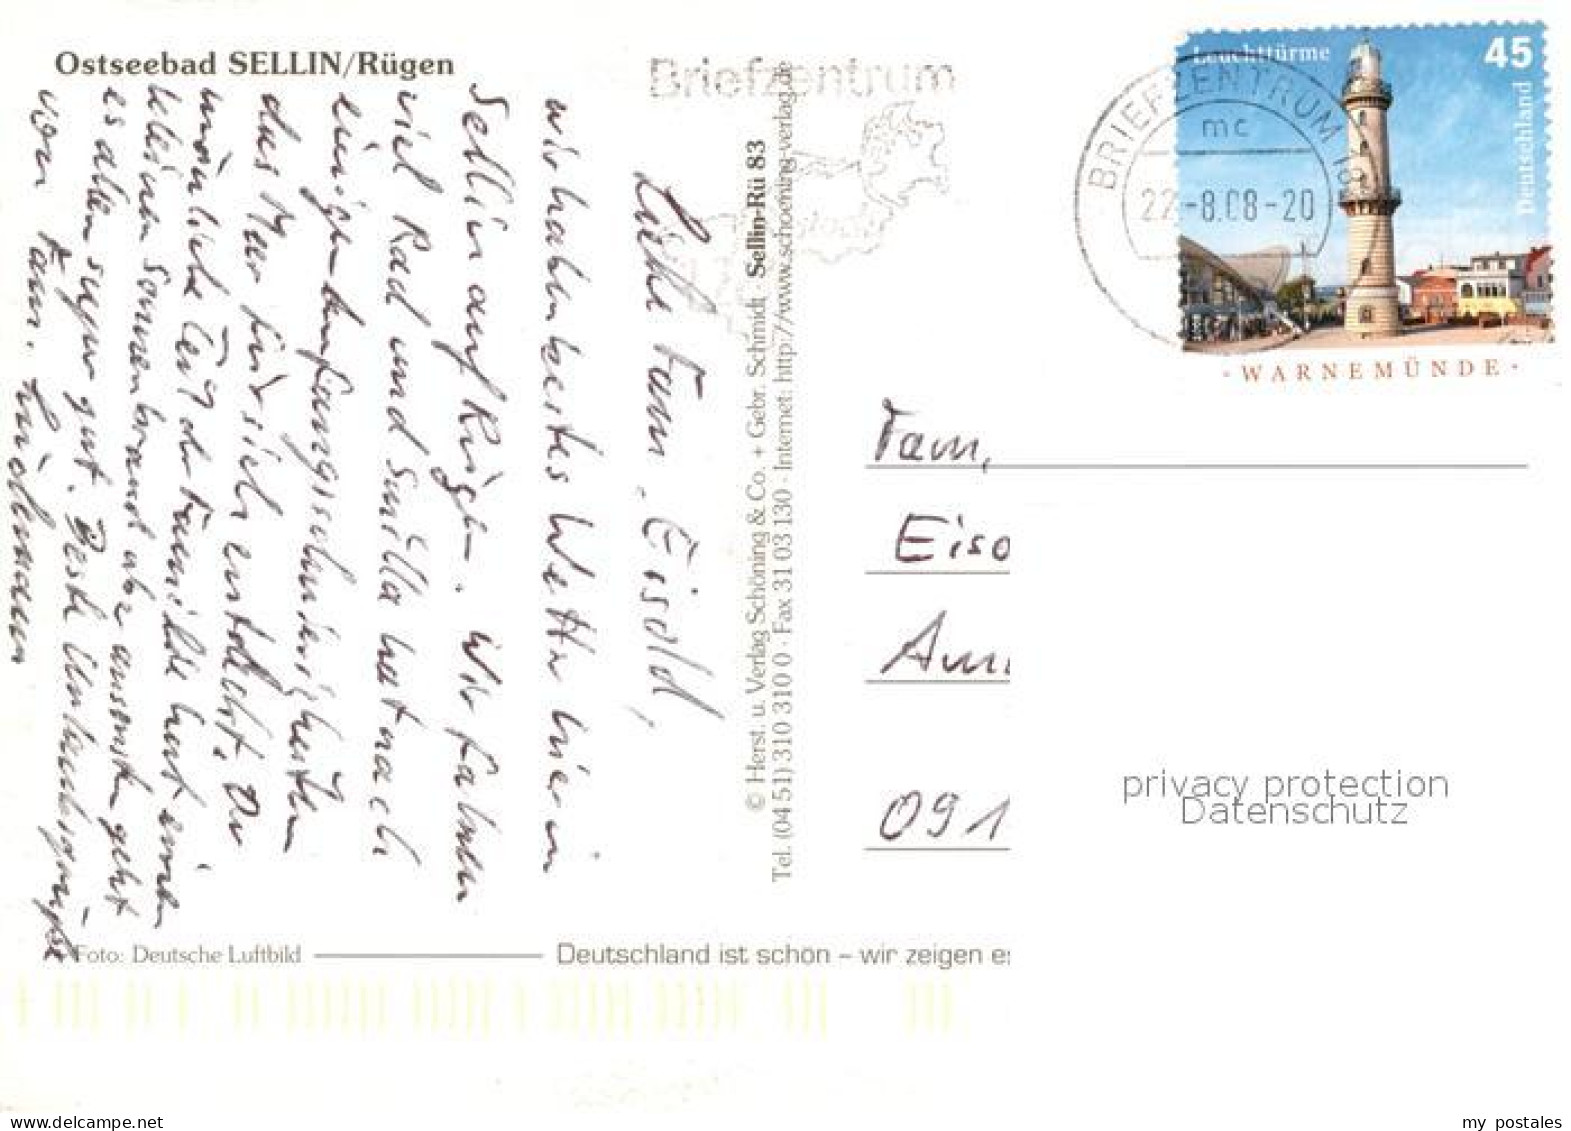 Ostseebad SELLIN/Rügen
Briefzentrum
Leuchttürme
45
Deutschland
BRIEFZENTRUM 18
mc
22.-8.08-20
· WARNEMÜNDE ·
Liebe Fam. Eisold,
wir haben bestes Wetter hier in
Sellin auf Rügen. Wir fahren
viel Rad und Smilla hat nach
einigen Anfangsschwierigkeiten
das Meer für sich entdeckt. Der
männliche Teil der Familie hat einen
kleinen Sonnenbrand aber ansonsten geht
es allen super gut. Beste Urlaubsgrüße
von Fam.
© Herst. u. Verlag Schöning & Co. + Gebr. Schmidt · Sellin-Rü 83
Tel. (04 51) 310 310 0 · Fax 31 03 130 · Internet: http://www.schoening-verlag.de
Fam.
Eiso
Am
091
privacy protection
Datenschutz
Foto: Deutsche Luftbild
Deutschland ist schön – wir zeigen es
my postales